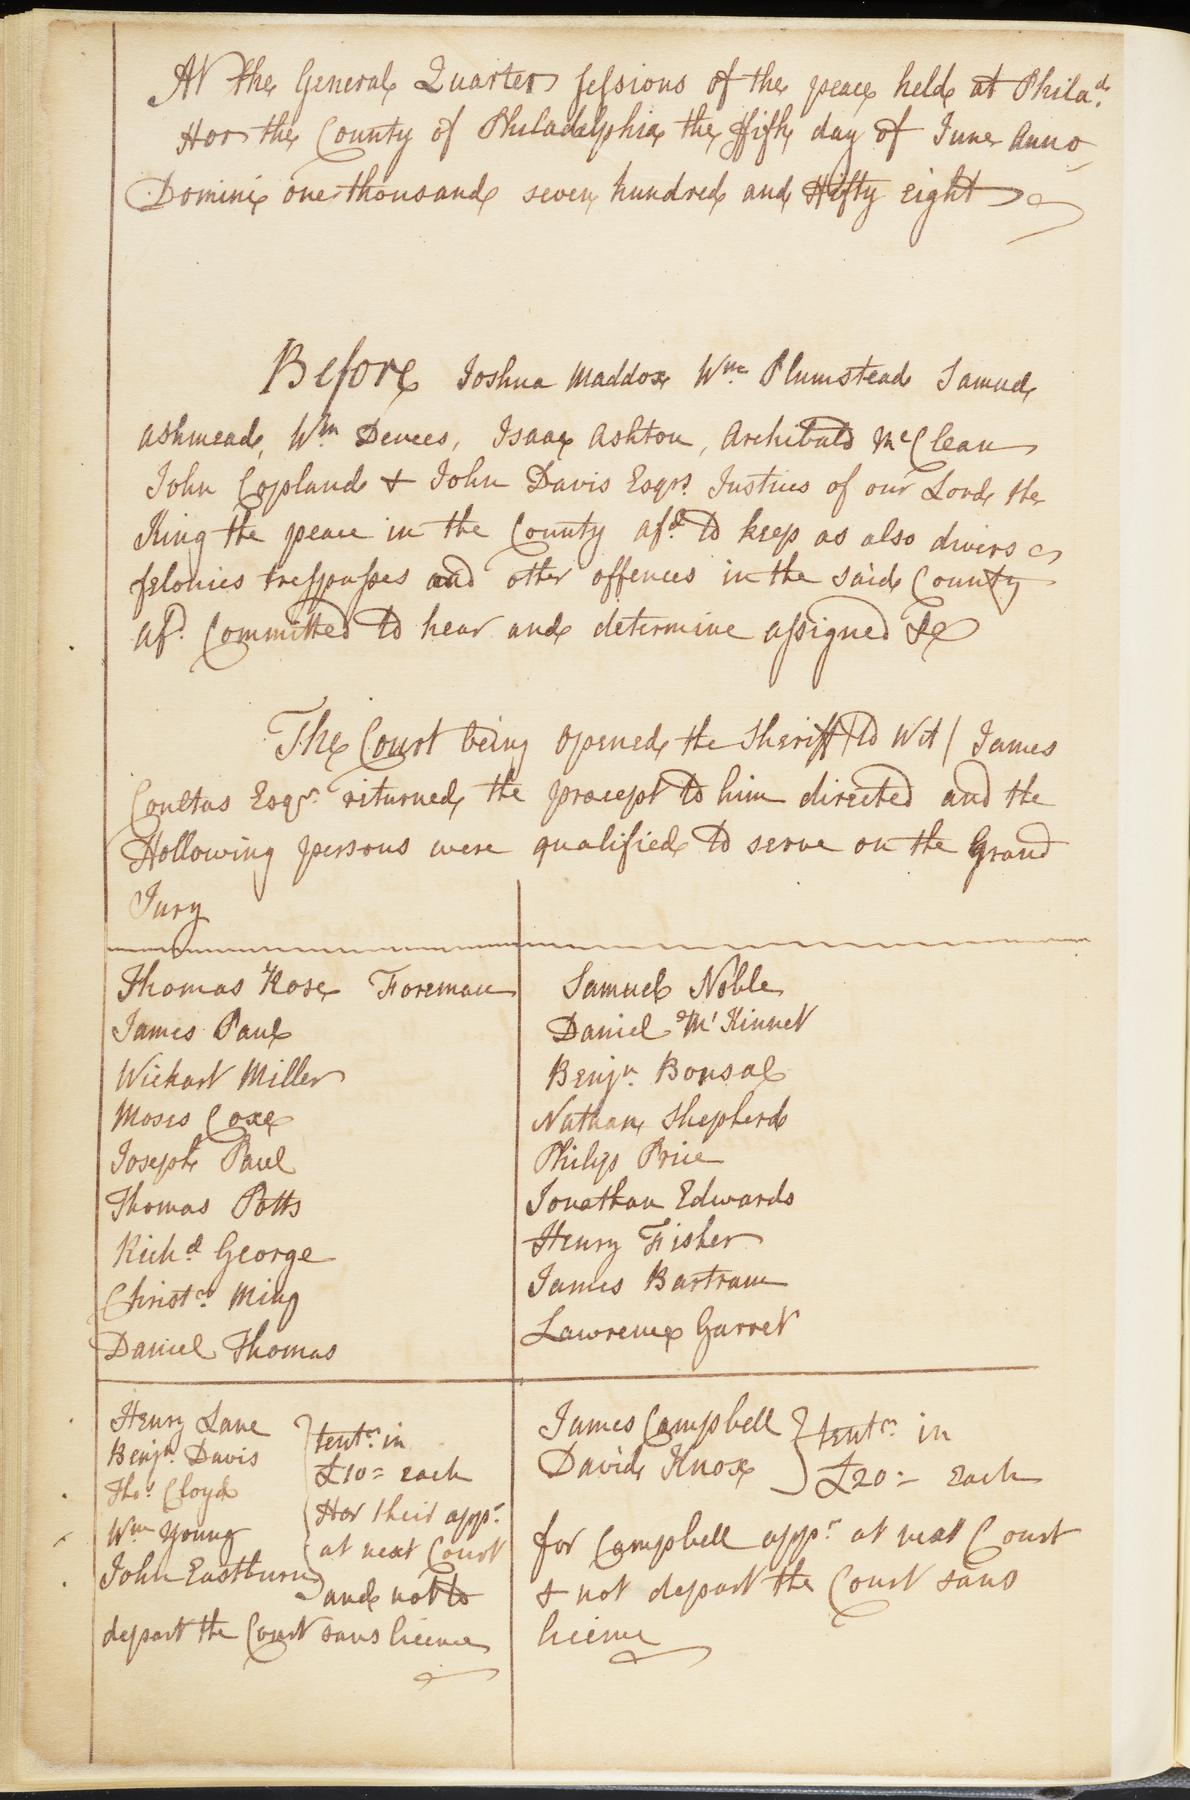 At the General Quarter sessions of the peace held at Philad.
For the County of Philadelphia the fifth day of June Anno
Domini one thousand seven hundred and Fifty Eight
Before Joshua Maddox Wm. Plumstead Samuel
Ashmead, Wm Dewees, Isaac Ashton, Archibald McClean
John Copland & John Davis Esqrs. Justices of our Lord the
King the peace in the County afd. to keep as also divers
felonies tresspasses and other offences in the said County
afd. Committed to hear and determine assigned &c
The Court being Opened the Sheriff /to Wit/ James
Coultas Esqr. returned the precept to him directed and the
Following persons were qualified to serve on the Grand
Jury
Thomas Rose Foreman
James Paul
Wickart Miller
Moses Coxe
Joseph Paul
Thomas Potts
Richd George
Christr. Ming
Daniel Thomas
Samuel Noble
Daniel McKinnet
Benjn. Bonsal
Nathan Shepherd
Philip Price
Jonathan Edwards
Henry Fisher
James Bartram
Lawrence Garret
Henry Lane
Benjn. Davis
Thos. Cloyd
Wm Young
John Eastburn
tentr. in
£10= Each
For their appr.
at next Court
and not to
depart the Court sans licence
James Campbell
David Knox
tentr. in
£20- Each
for Campbell appr. at next Court
& not depart the Court sans
licence